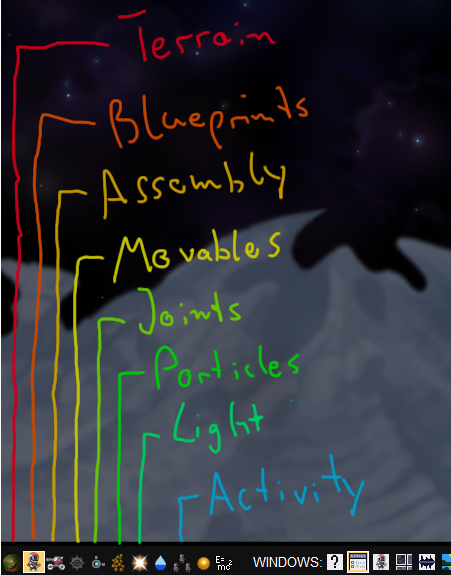 Terrain
Blueprints
Assembly
Movables
Joints
Particles
Light
Activity
WINDOWS: ?